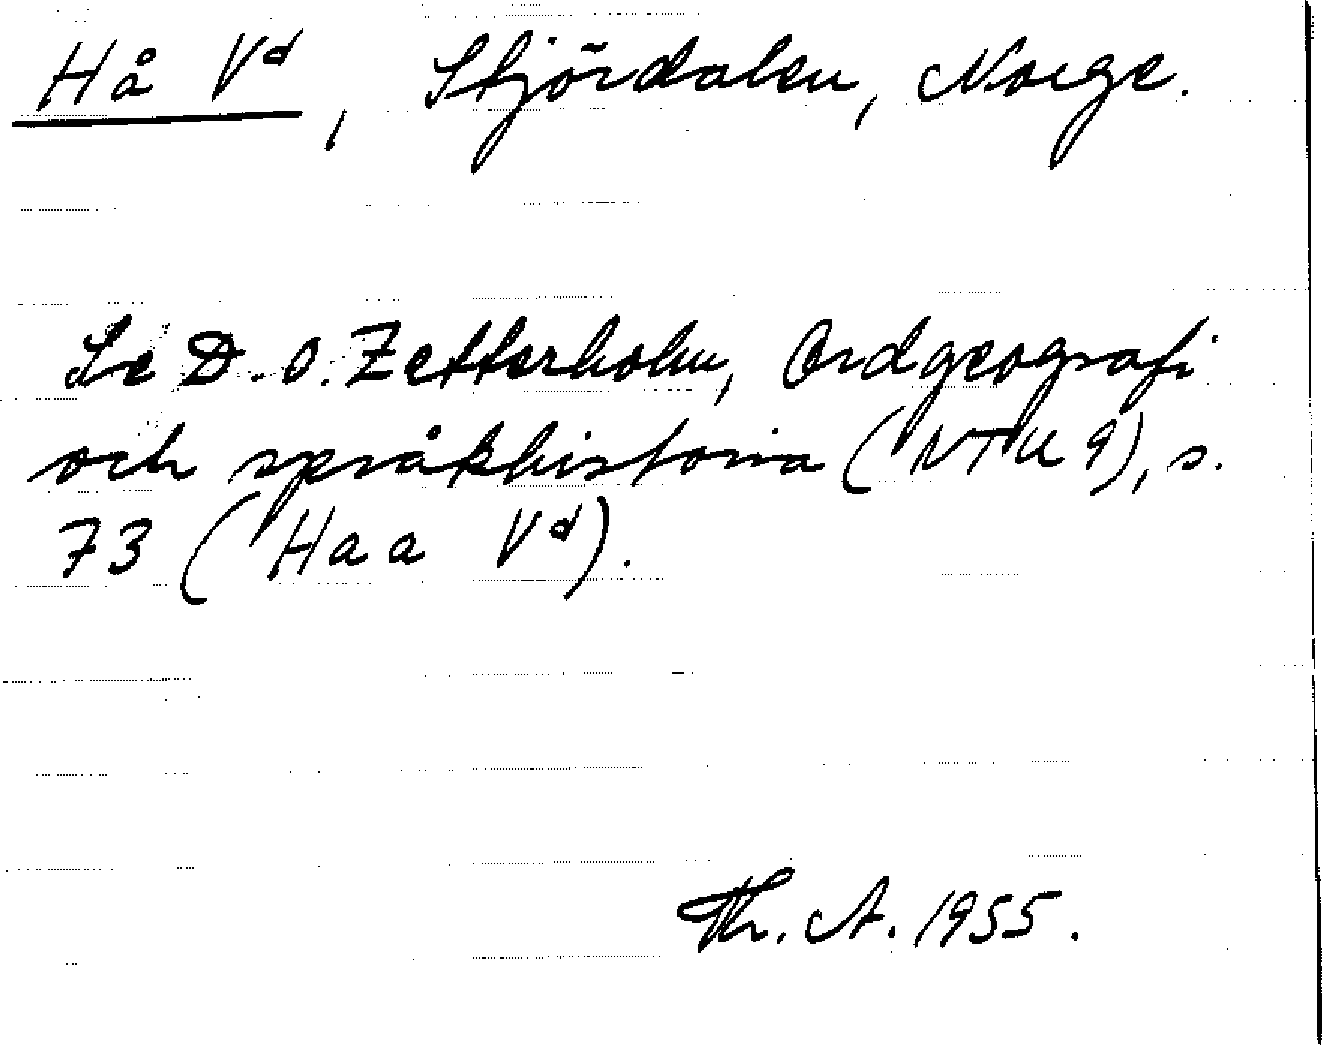 Hå Vd, Stjördalen, Norge.
Se D. O. Zetterholm, Ordgeografi
och språkhistoria (NTU 9), s.
73 (Haa Vd).
Th. A. 1955.